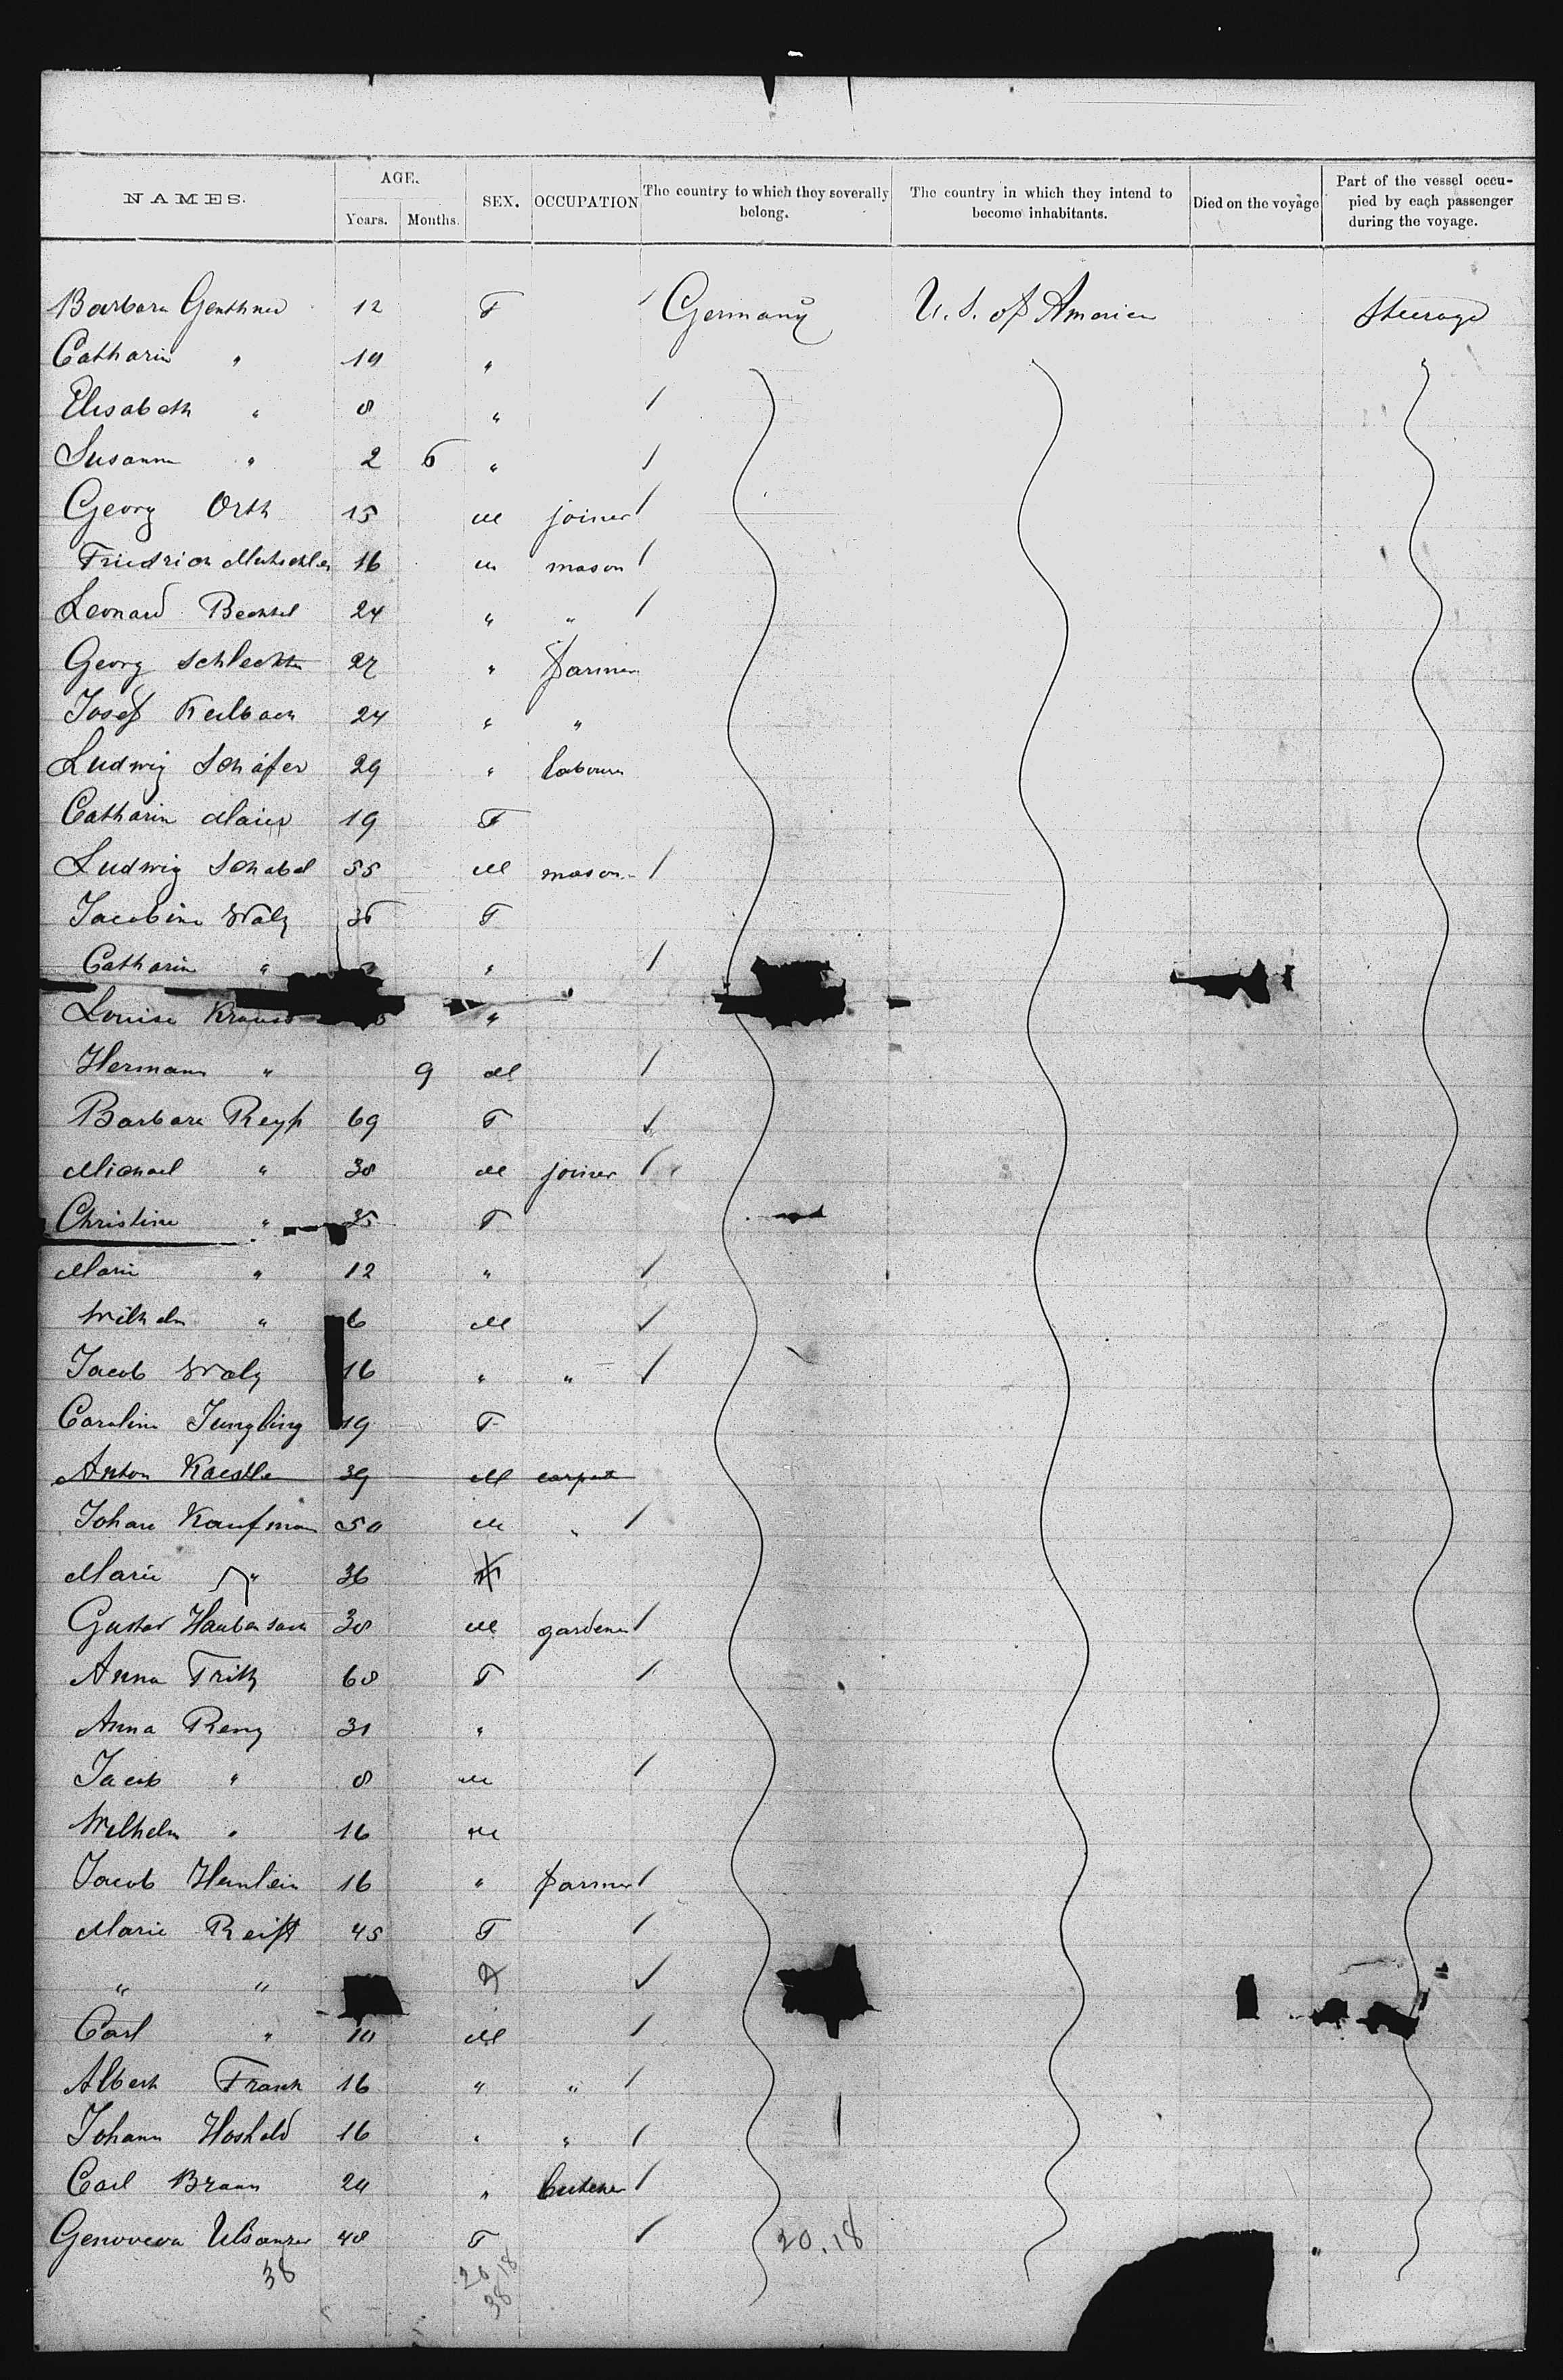 NAMES. AGE. Years. Months. SEX. OCCUPATION The country to which they severally belong. The country in which they intend to become inhabitants. Died on the voyage Part of the vessel occu-pied by each passenger during the voyage.
Barbara Genthner 12 F Germany U. S. of America Steerage
Catharin " 19 "
Elisabeth " 8 "
Susanna " 2 6 "
Georg Orth 15 M joiner
Friedrich 16 M mason
Leonard Bechtel 24 " "
Georg Schlechter 27 " farmer
Josef Keilbach 24 " "
Ludwig Schäfer 29 " labourer
Catharin Maier 19 F
Ludwig Schabel 55 M mason
Jacobine Walz 36 F
Catharin " "
Louise Krauss "
Herman " 9 M
Barbara 69 F
Michael " 38 M joiner
Christine " 35 F
Marie " 12 "
Wilhelm " 6 M
Jacob Walz 16 " "
Caroline Jungling 19 F
Anton Kaestle 39 M carpent
Johan Kaufman 50 M "
Marie " 36
Gustav 38 M gardener
Anna Fritz 60 F
Anna Renz 31 "
Jacob " 8 M
Wilhelm " 16 M
Jacob Henlein 16 " farmer
Marie Reift 45 F
" "
Carl " 10 M
Albert Frank 16 " "
Johann 16 " "
Carl Braun 24 " butcher
Genoveva 48 F 20.18
38 20 18
38